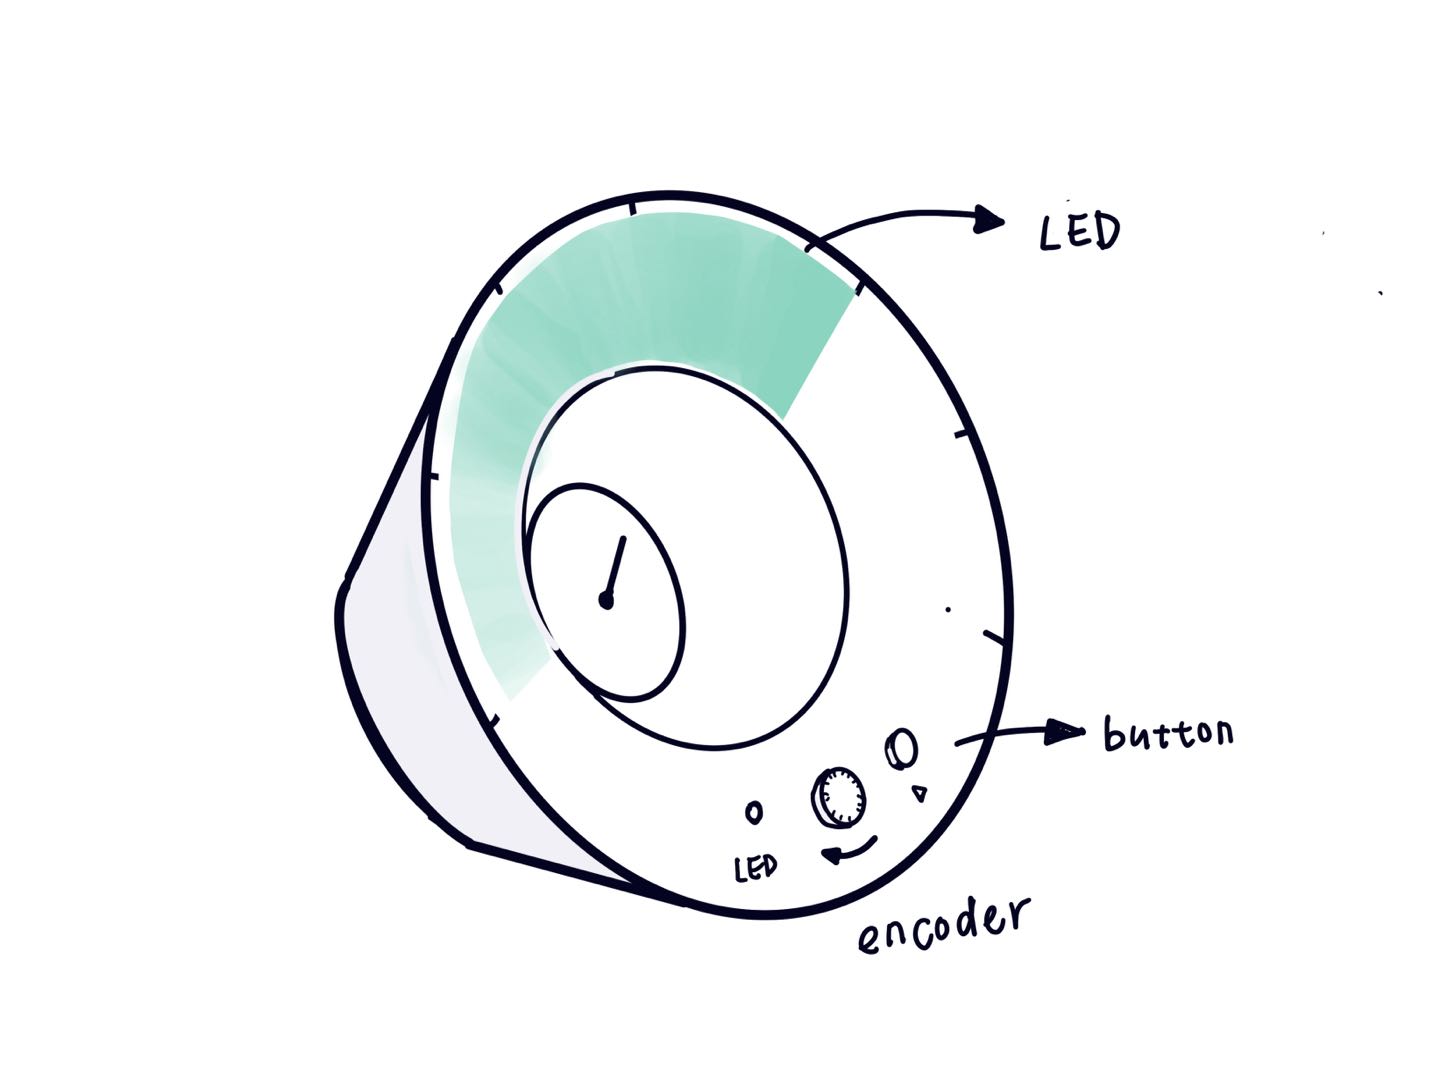 LED
button
LED
encoder